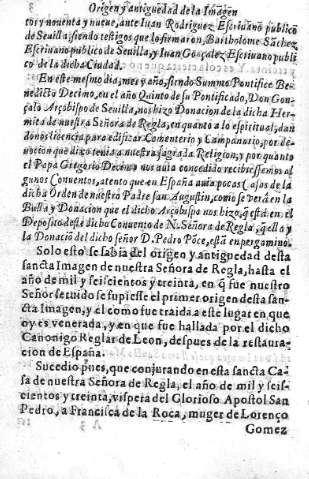 Origen y antiguedad de la Imagen
tos y nouenta y nueue, ante Iuan Rodriguez Escriuano publico
de Seuilla, siendo testigos que lo firmaron, Bartholome Sãchez,
Escriuano publico de Seuilla, y Iuan Gonçalez Escriuano publi
co de la dicha Ciudad.
En este mesmo dia, mes y año, siendo Summo Pontifice Be-
nedicto Decimo, en el año Quinto de su Pontificado, Don Gon-
çalo Arçobispo de Seuilla, nos hizo Donacion de la dicha Her-
mita de nuestra Señora de Regla, en quanto a lo espiritual, dan
donos licencia para edificar Comenterio y Campanario, por de-
uocion que dixo tenia a nuestra sagrada Religion, y por quanto
el Papa Gregorio Decimo nos auia concedido recibiessemos al
gunos Conuentos, atento que en España auia pocas Casas de la
dicha Orden de nuestro Padre san Augustin, como se verà en la
Bulla y Donacion que el dicho Arçobispo nos hizo, q̃ està en el
Deposito deste dicho Conuento de N. Señora de Regla, q̃ ella y
la Donaciõ del dicho señor D. Pedro Põce, està en pergamino.
Solo esto se sabia del origen y antiguedad desta
sancta Imagen de nuestra Señora de Regla, hasta el
año de mil y seiscientos y treinta, en q̃ fue nuestro
Señor seruido se supiesse el primer origen desta san-
cta Imagen, y el como fue traida a este lugar en que
oy es venerada, y en que fue hallada por el dicho
Canonigo Reglar de Leon, despues de la restaura-
cion de España.
Sucedio pues, que conjurando en esta sancta Ca-
sa de nuestra Señora de Regla, el año de mil y seis-
cientos y treinta, vispera del Glorioso Apostol San
Pedro, a Francisca de la Roca, muger de Lorenço
Gomez